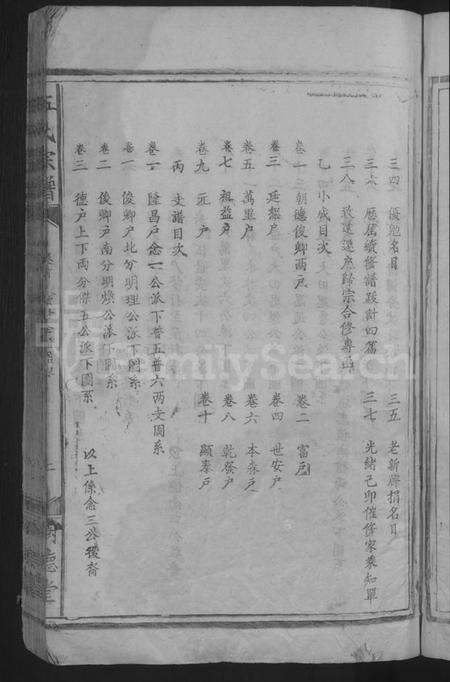 三四 優免名目 三五 老新牌捐名目
三六 歷屆續修譜跋附四篇 三七 光緒己卯催修家乘知單
三八 敦遠遷房歸宗合修專
乙 小成目次
卷一 朝德俊卿兩戶 卷二 富戶
卷三 廷超戶 卷四 世安戶
卷五 萬里戶 卷六 本森戶
卷七 祖益戶 卷八 乾發戶
卷九 元戶 卷十 顯泰戶
丙 支譜目次
卷一 隆昌戶念一公派下普五普六兩支圖系
卷一 俊卿戶北分明理公派下圖系
卷二 俊卿戶南分明煥公派下圖系
卷三 德戶上下兩分傑五公派下圖系 以上係念三公後裔
氏宗譜
德堂
FamilySearch